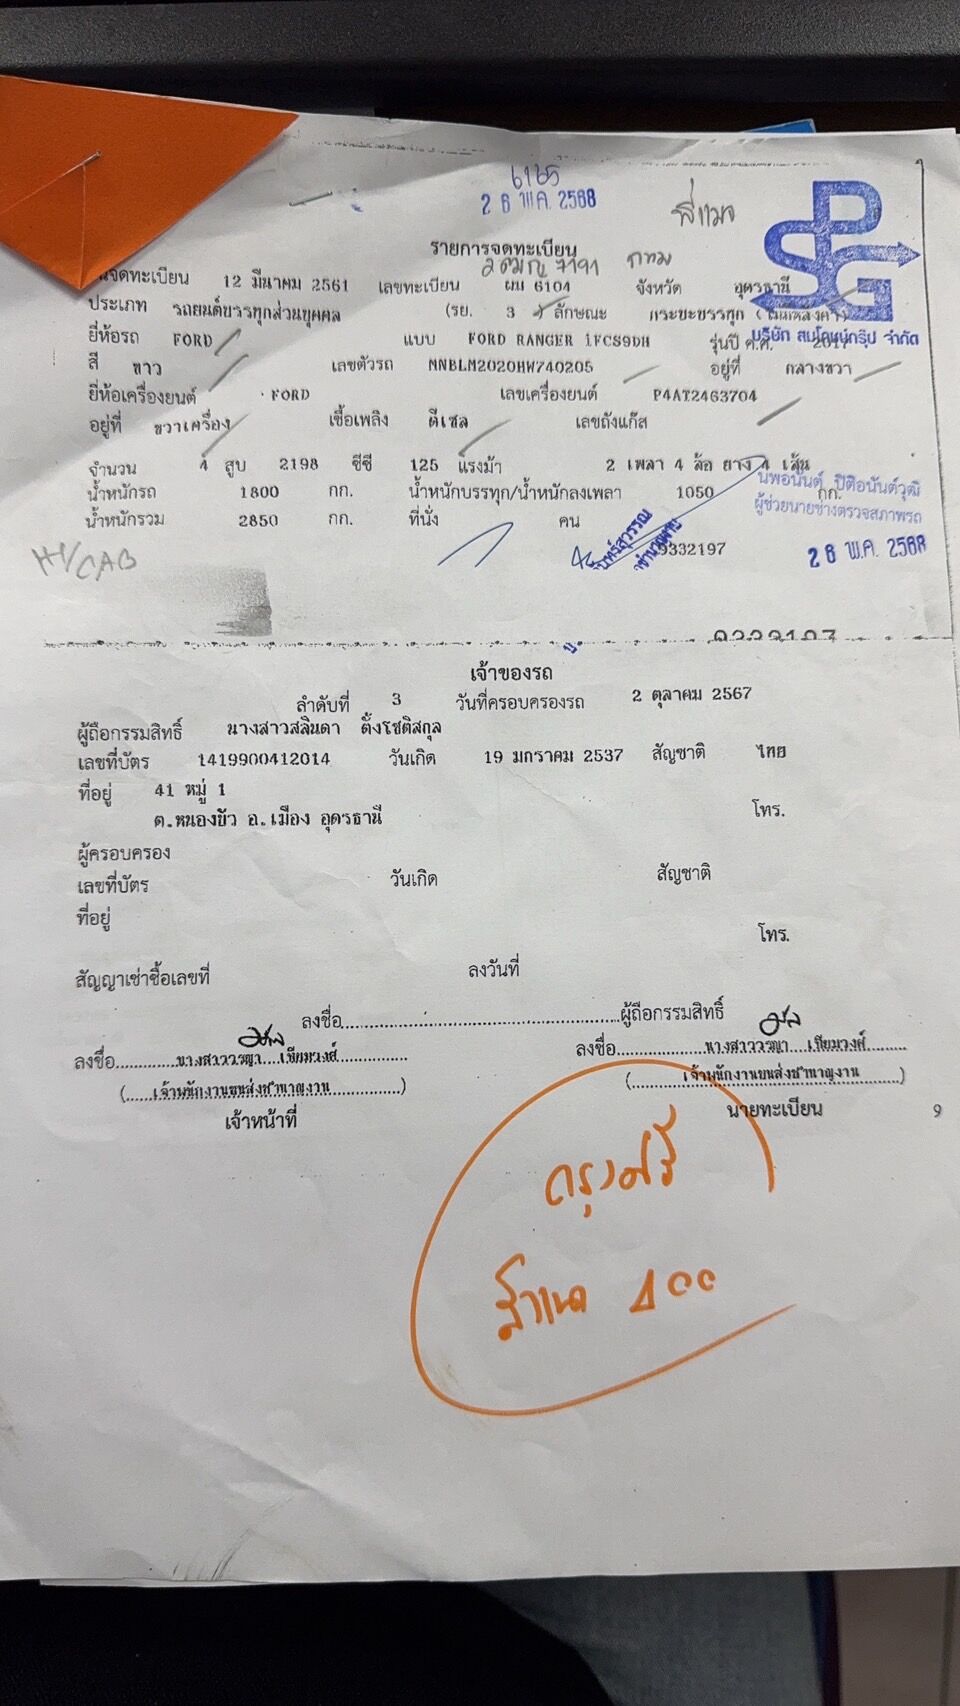 26 พ.ค. 2568
พี่แมว
รายการจดทะเบียน
2ฒญ 7191 กทม
วันจดทะเบียน 12 มีนาคม 2561 เลขทะเบียน ผม 6104 จังหวัด อุดรธานี
ประเภท รถยนต์บรรทุกส่วนบุคคล (รย. 3 ) ลักษณะ กระบะบรรทุก
ยี่ห้อรถ FORD แบบ FORD RANGER 1FCS9DH รุ่นปี ค.ศ. 2017
บริษัท สมโภชน์กรุ๊ป จำกัด
สี ขาว เลขตัวรถ MNBLM2020HW740205 อยู่ที่ กลางขวา
ยี่ห้อเครื่องยนต์ FORD เลขเครื่องยนต์ P4AT2463704
อยู่ที่ ขวาเครื่อง เชื้อเพลิง ดีเซล เลขถังแก๊ส
จำนวน 4 สูบ 2198 ซีซี 125 แรงม้า 2 เพลา 4 ล้อ ยาง 4 เส้น
น้ำหนักรถ 1800 กก. น้ำหนักบรรทุก/น้ำหนักลงเพลา 1050 กก.
นพอนันต์ ปิติอนันต์วุฒิ
ผู้ช่วยนายช่างตรวจสภาพรถ
น้ำหนักรวม 2850 กก. ที่นั่ง คน
26 พ.ค. 2568
9332197
HI/CAB
เจ้าของรถ
ลำดับที่ 3 วันที่ครอบครองรถ 2 ตุลาคม 2567
ผู้ถือกรรมสิทธิ์ นางสาวสลินดา ตั้งโชติสกุล
เลขที่บัตร 1419900412014 วันเกิด 19 มกราคม 2537 สัญชาติ ไทย
ที่อยู่ 41 หมู่ 1
ต.หนองบัว อ.เมือง อุดรธานี โทร.
ผู้ครอบครอง
เลขที่บัตร วันเกิด สัญชาติ
ที่อยู่
โทร.
สัญญาเช่าซื้อเลขที่ ลงวันที่
ลงชื่อ ผู้ถือกรรมสิทธิ์
ลงชื่อ นางสาววรญา เทียมวงศ์ ลงชื่อ นางสาววรญา เทียมวงศ์
(เจ้าพนักงานขนส่งชำนาญงาน) (เจ้าพนักงานขนส่งชำนาญงาน)
เจ้าหน้าที่ นายทะเบียน 9
กรุงศรี
400